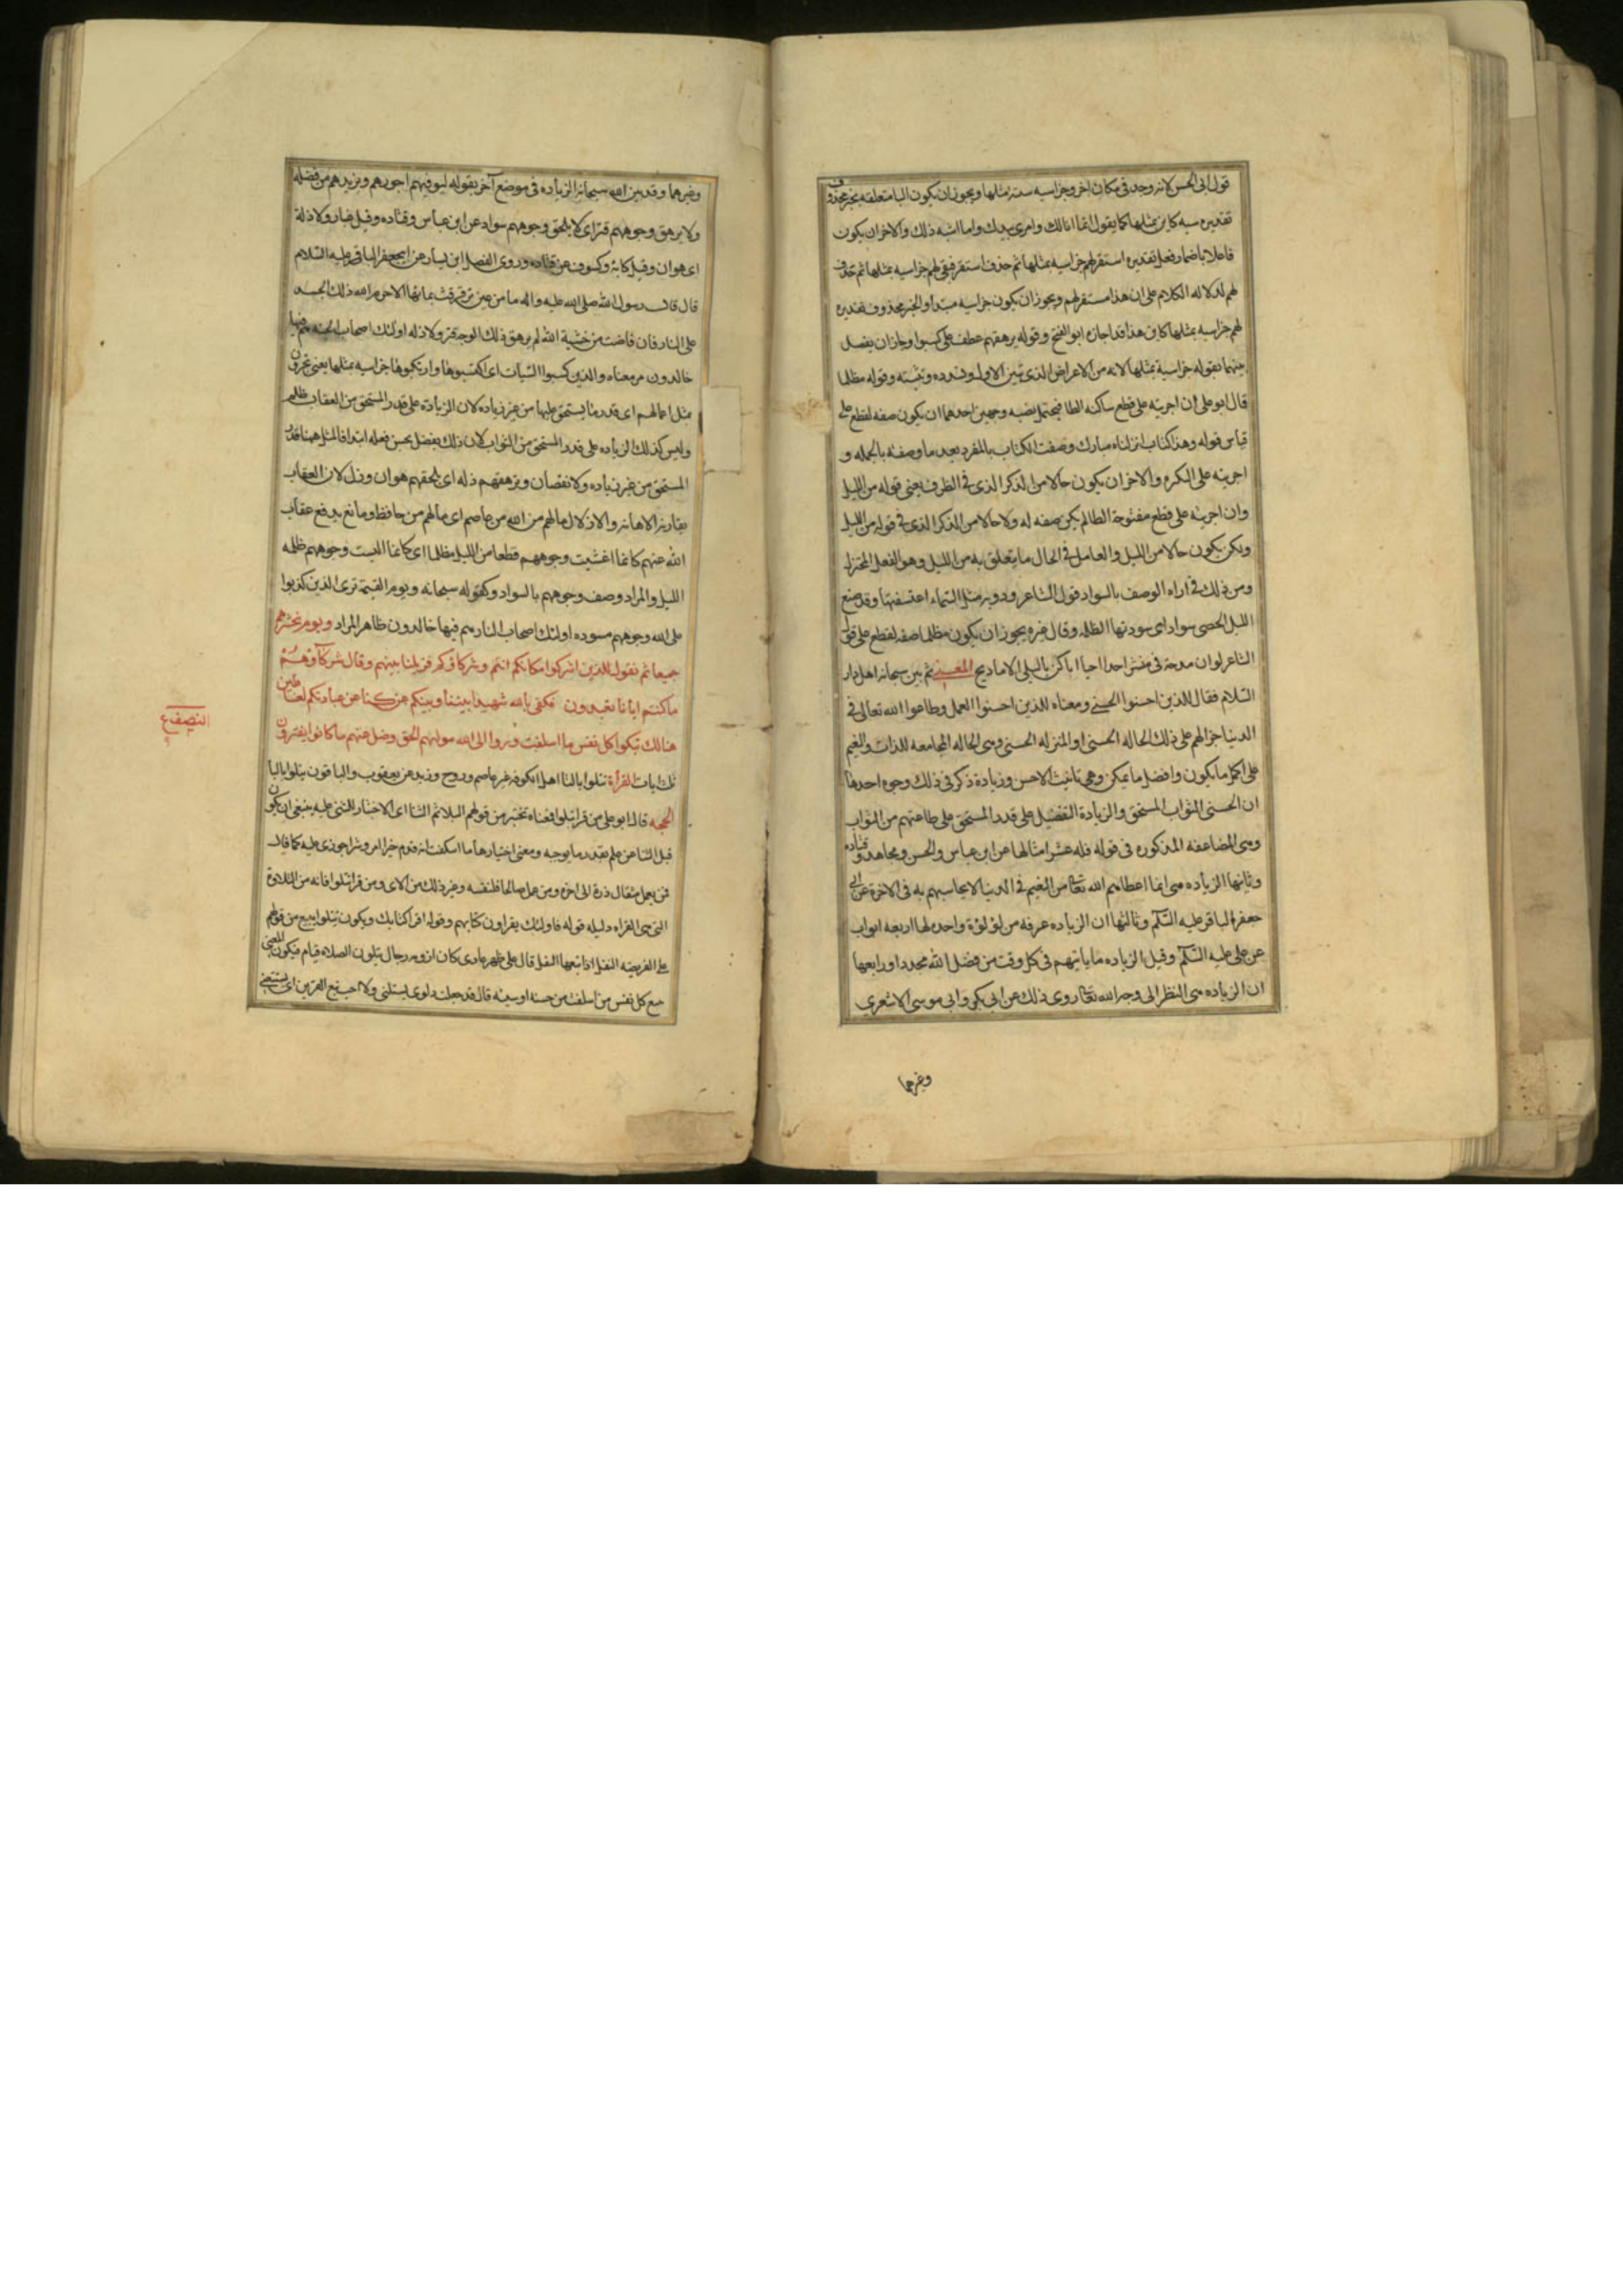 قول ابى الحسن لانه وجد فى مكان اخر وجزا سيه سيئة مثلها ويجوز ان يكون البا متعلقه بخبر محذوف
تقديره سيه كاين بمثلها كما يقول انما انا لك وامرى بيدك واما اشبه ذلك والاخر ان يكون
فاعلا باضمار فعل تقديره استقر لهم جزا سيه بمثلها ثم حذف استقر فبقى لهم جزا سيه بمثلها ثم حذف
لهم لدلاله الكلام على ان هذا مستقر لهم ويجوز ان يكون جزا سيه مبتدا والخبر محذوف تقديره
لهم جزا سيه بمثلها كاين هذا قد اجازه ابو الفتح وقوله يرهقهم عطف على كسبوا وجاز ان يفصل
بينهما بقوله جزا سية بمثلها لانه من الاعراض الذى يبين الاول وقوله مظلما
قال ابو على ان اجريته على قطع ساكنه الطا فيحتمل نصبه وجهين احدهما ان يكون صفه لقطع على
قياس قوله وهذا كتاب انزلناه مبارك وصفت الكتاب بالمفرد بعد ما وصفته بالجمله و
اجريته على النكره والاخر ان يكون حالا من الذكر الذى فى الظرف يعنى قوله من الليل
وان اجريته على قطع مفتوحة الطا لم يكن صفه له ولا حالا من الذكر الذى فى قوله من الليل
ولكن يكون حالا من الليل والعامل فى الحال ما يتعلق به من الليل وهو الفعل المختزل
ومن ذلك فى اراه الوصف بالسواد قول الشاعر ودويه مثل السماء اعتسفتها وقد صبغ
الليل الحصى سواد اى سودتها الظلمه وقال غيره يجوز ان يكون مظلما صفه لقطع على قول
الشاعر لو ان مدحة حى منشر احدا احيا اباكن يا ليلى الاماديح المعنى ثم بين سبحانه اهل دار
السلام فقال للذين احسنوا الحسنى ومعناه للذين احسنوا العمل وطاعوا الله تعالى فى
الدنيا جزا لهم على ذلك الحاله الحسنى او المنزله الحسنى وهى الحاله الجامعه للذات والنعيم
على اكمل ما يكون وافضل ما يمكن وهى تانيث الاحسن وزيادة ذكر فى ذلك وجوه احدها
ان الحسنى الثواب المستحق والزيادة التفضيل على قدر المستحق على طاعتهم من الثواب
وهى المضاعفه المذكوره فى قوله فله عشر امثالها عن ابن عباس والحسن ومجاهد وقتاده
وثانيها الزياده هى انما اعطاهم الله تعا من النعيم فى الدنيا لا يحاسبهم به فى الاخرة عن ابى
جعفر الباقر عليه السلم وثالثها ان الزياده غرفه من لؤلؤة واحده لها اربعه ابواب
عن على عليه السلم وقيل الزياده ما ياتيهم فى كل وقت من فضل الله مجددا ورابعها
ان الزياده هى النظر الى وجه الله تعا روى ذلك عن ابى بكر وابى موسى الاشعرى
وغيرهما
وغيرهما وقد بين الله سبحانه الزياده فى موضع آخر بقوله ليوفيهم اجورهم ويزيدهم من فضله
ولا يرهق وجوههم قتر اى لا يلحق وجوههم سواد عن ابن عباس وقتاده وقيل غبار ولا ذلة
اى هوان وقيل كابة وكسوف عن قتاده وروى الفضيل ابن يسار عن ابى جعفر الباقر عليه السلام
قال قال رسول الله صلى الله عليه واله ما من عين ترقرقت بمائها الا حرم الله ذلك الجسد
على النار فان فاضت من خشية الله لم يرهق ذلك الوجه قتر ولا ذله اولئك اصحاب الجنه هم فيها
خالدون مر معناه والذين كسبوا السيات اى اكتسبوها وارتكبوها جزا سيه بمثلها يعنى يجزون
بمثل اعمالهم اى قدر ما يستحق عليها من غير زياده لان الزيادة على قدر المستحق من العقاب ظلم
وليس كذلك الزياده على قدر المستحق من الثواب لان ذلك تفضل يحسن فعله ابتدا فالمثل ههنا قدر
المستحق من غير زياده ولا نقصان وترهقهم ذله اى يلحقهم هوان وذل لان العقاب
يقارنه الاهانه والاذلال مالهم من الله من عاصم اى مالهم من حافظ ومانع يدفع عقاب
الله عنهم كانما اغشيت وجوههم قطعا من الليل مظلما اى كانما البست وجوههم ظلمه
الليل والمراد وصف وجوههم بالسواد وكقوله سبحانه ويوم القيمة ترى الذين كذبوا
على الله وجوههم مسوده اولئك اصحاب النار هم فيها خالدون ظاهر المراد ويوم نحشرهم
جميعا ثم نقول للذين اشركوا مكانكم انتم وشركاؤكم فزيلنا بينهم وقال شركآؤهم
ما كنتم ايانا تعبدون فكفى بالله شهيدا بيننا وبينكم ان كنا عن عبادتكم لغافلين
هنالك تبلوا كل نفس ما اسلفت وردوا الى الله موليهم الحق وضل عنهم ما كانوا يفترون
النصف ع
ثلث ايات القرأة تتلوا بالتا اهل الكوفه غير عاصم وروح وزيد عن يعقوب والباقون تبلوا بالبا
الحجه قال ابو على من قرا تبلوا فمعناه تختبر من قولهم البلا ثم الثنا اى الاختبار للمثنى عليه ينبغى ان يكون
قبل الثنا عن علم بقدر ما يوجبه ومعنى اختيارها ما اسلفت انه قدم خيرا او شرا جوزى عليه كما قال
فمن يعمل مثقال ذرة الى اخره ومن عمل صالحا فلنفسه وغير ذلك من الاى ومن قرا تتلوا فانه من التلاوة
التى هى القراه دليله قوله فاولئك يقراون كتابهم وقوله اقرا كتابك ويكون تتلوا تتبع من قولهم
تلا الفريضه النفل اذا تبعها النفل قال على ظهر عادى كان ارومه رجال يتلون الصلاه قيام فيكون المعنى
تتبع كل نفس من اسلفت من حسنة او سيئة قال قد جعلت دلوى تستتلينى ولا احب تبع القرين اى تستتبعنى